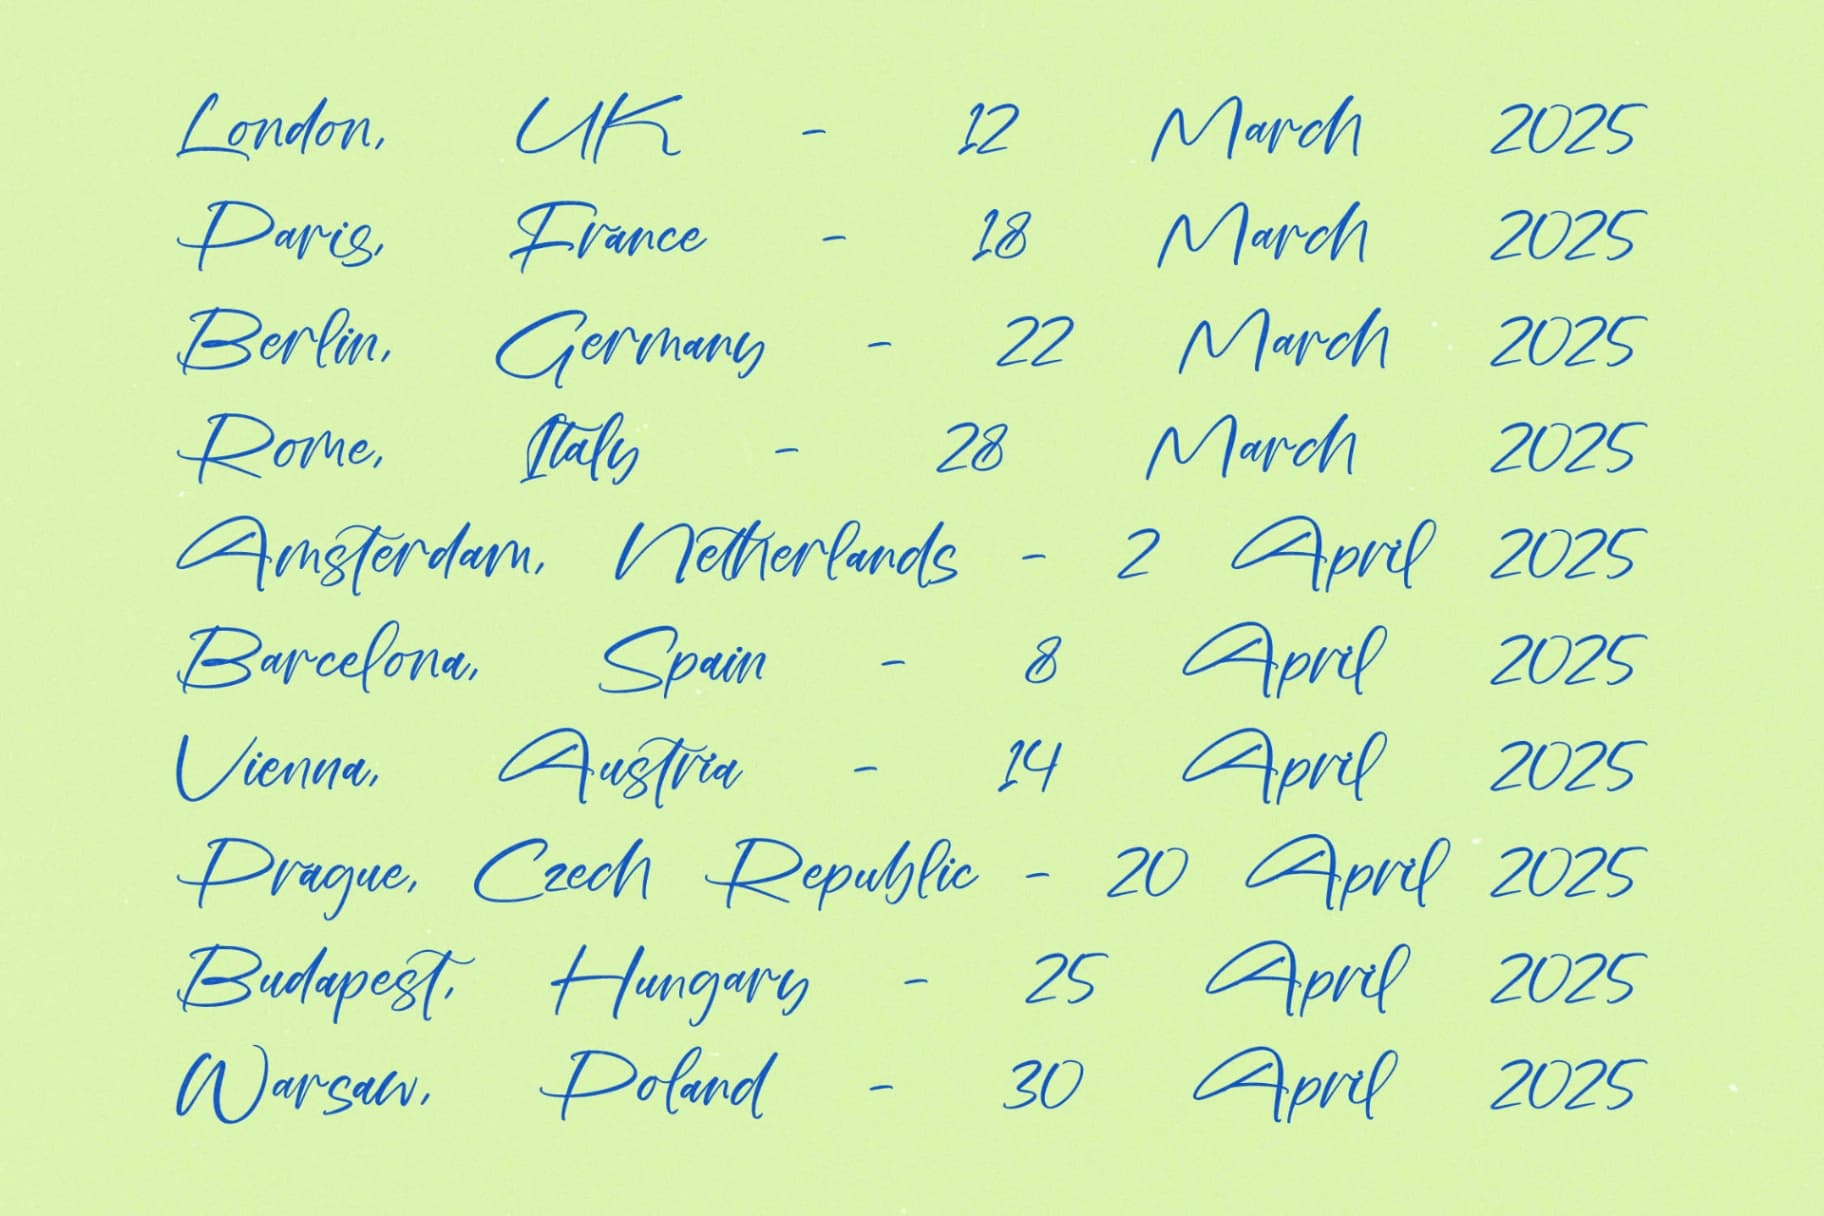 London, UK - 12 March 2025
Paris, France - 18 March 2025
Berlin, Germany - 22 March 2025
Rome, Italy - 28 March 2025
Amsterdam, Netherlands - 2 April 2025
Barcelona, Spain - 8 April 2025
Vienna, Austria - 14 April 2025
Prague, Czech Republic - 20 April 2025
Budapest, Hungary - 25 April 2025
Warsaw, Poland - 30 April 2025